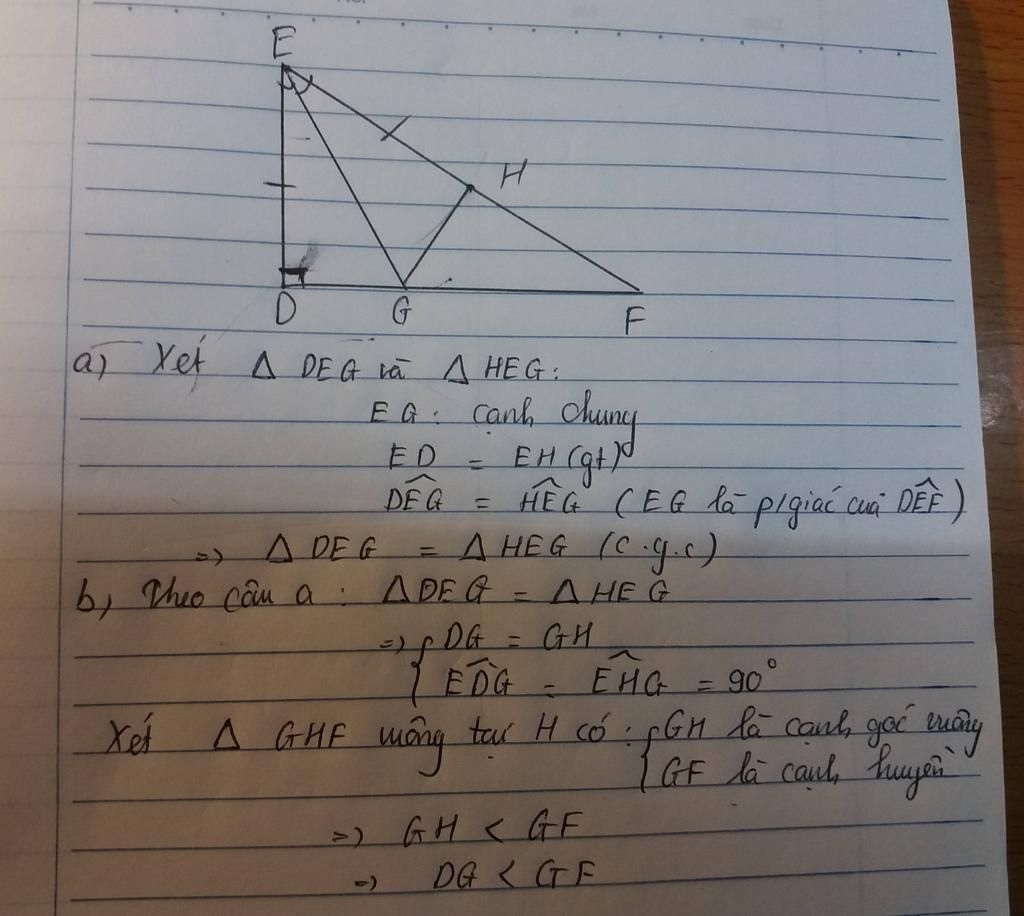 E
H
D G F
a) Xét Δ DEG và Δ HEG:
EG: cạnh chung
ED = EH (gt)
DÊG = HÊG (EG là p/giác của DÊF)
=> Δ DEG = Δ HEG (c.g.c)
b, Theo câu a: Δ DEG = Δ HEG
=> { DG = GH
ED̂G = EĤG = 90°
Xét Δ GHF vuông tại H có: { GH là cạnh góc vuông
GF là cạnh huyền
=> GH < GF
=> DG < GF